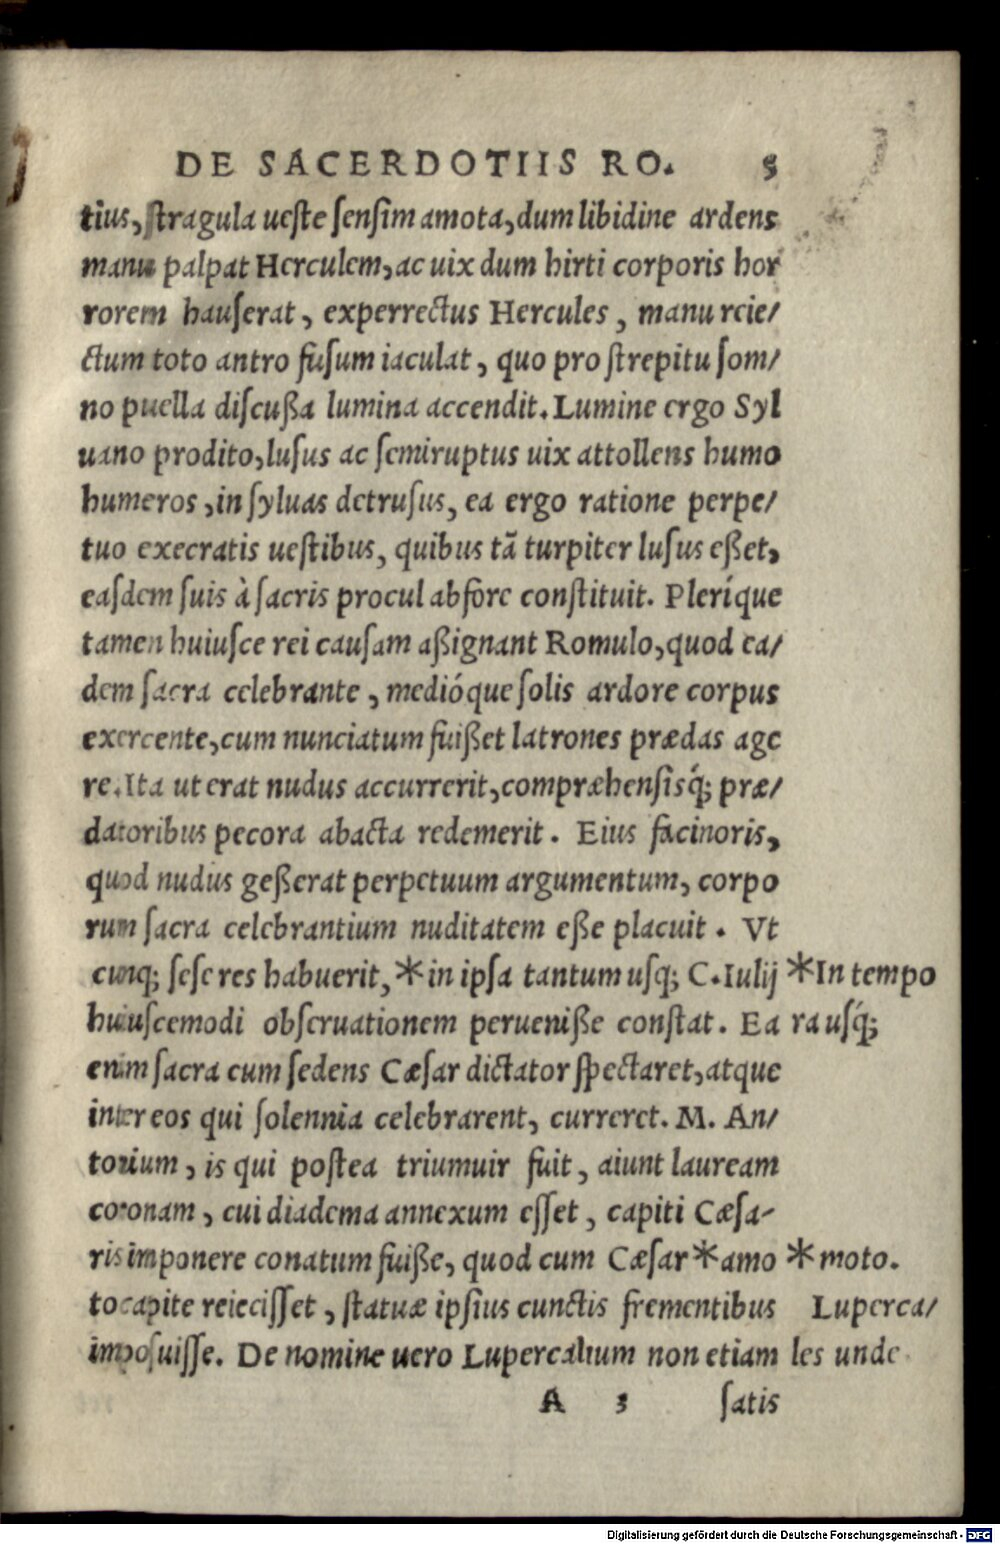 DE SACERDOTIIS RO. 5
tius, stragula ueste sensim amota, dum libidine ardens
manu palpat Herculem, ac uix dum hirti corporis hor
rorem hauserat, experrectus Hercules, manu reie/
ctum toto antro fusum iaculat, quo pro strepitu som/
no puella discußa lumina accendit. Lumine ergo Syl
uano prodito, lusus ac semiruptus uix attollens humo
humeros, in syluas detrusus, ea ergo ratione perpe/
tuo execratis uestibus, quibus tā turpiter lusus eßet,
easdem suis à sacris procul abfore constituit. Pleríque
tamen huiusce rei causam aßignant Romulo, quod ea/
dem sacra celebrante, medióque solis ardore corpus
exercente, cum nunciatum fuißet latrones prædas age
re. Ita ut erat nudus accurrerit, compræhensisq́; præ/
datoribus pecora abacta redemerit. Eius facinoris,
quod nudus geßerat perpetuum argumentum, corpo
rum sacra celebrantium nuditatem eße placuit. Vt
cunq; sese res habuerit, * in ipsa tantum usq; C. Iulij *In tempo
huiuscemodi obseruationem perueniße constat. Ea ra usq́;
enim sacra cum sedens Cæsar dictator spectaret, atque
inter eos qui solennia celebrarent, curreret. M. An/
tonium, is qui postea triumuir fuit, aiunt lauream
coronam, cui diadema annexum esset, capiti Cæsa-
ris imponere conatum fuiße, quod cum Cæsar * amo * moto.
to capite reiecisset, statuæ ipsius cunctis frementibus Luperca/
imposuisse. De nomine uero Lupercalium non etiam les unde
A 3 satis
Digitalisierung gefördert durch die Deutsche Forschungsgemeinschaft - DFG